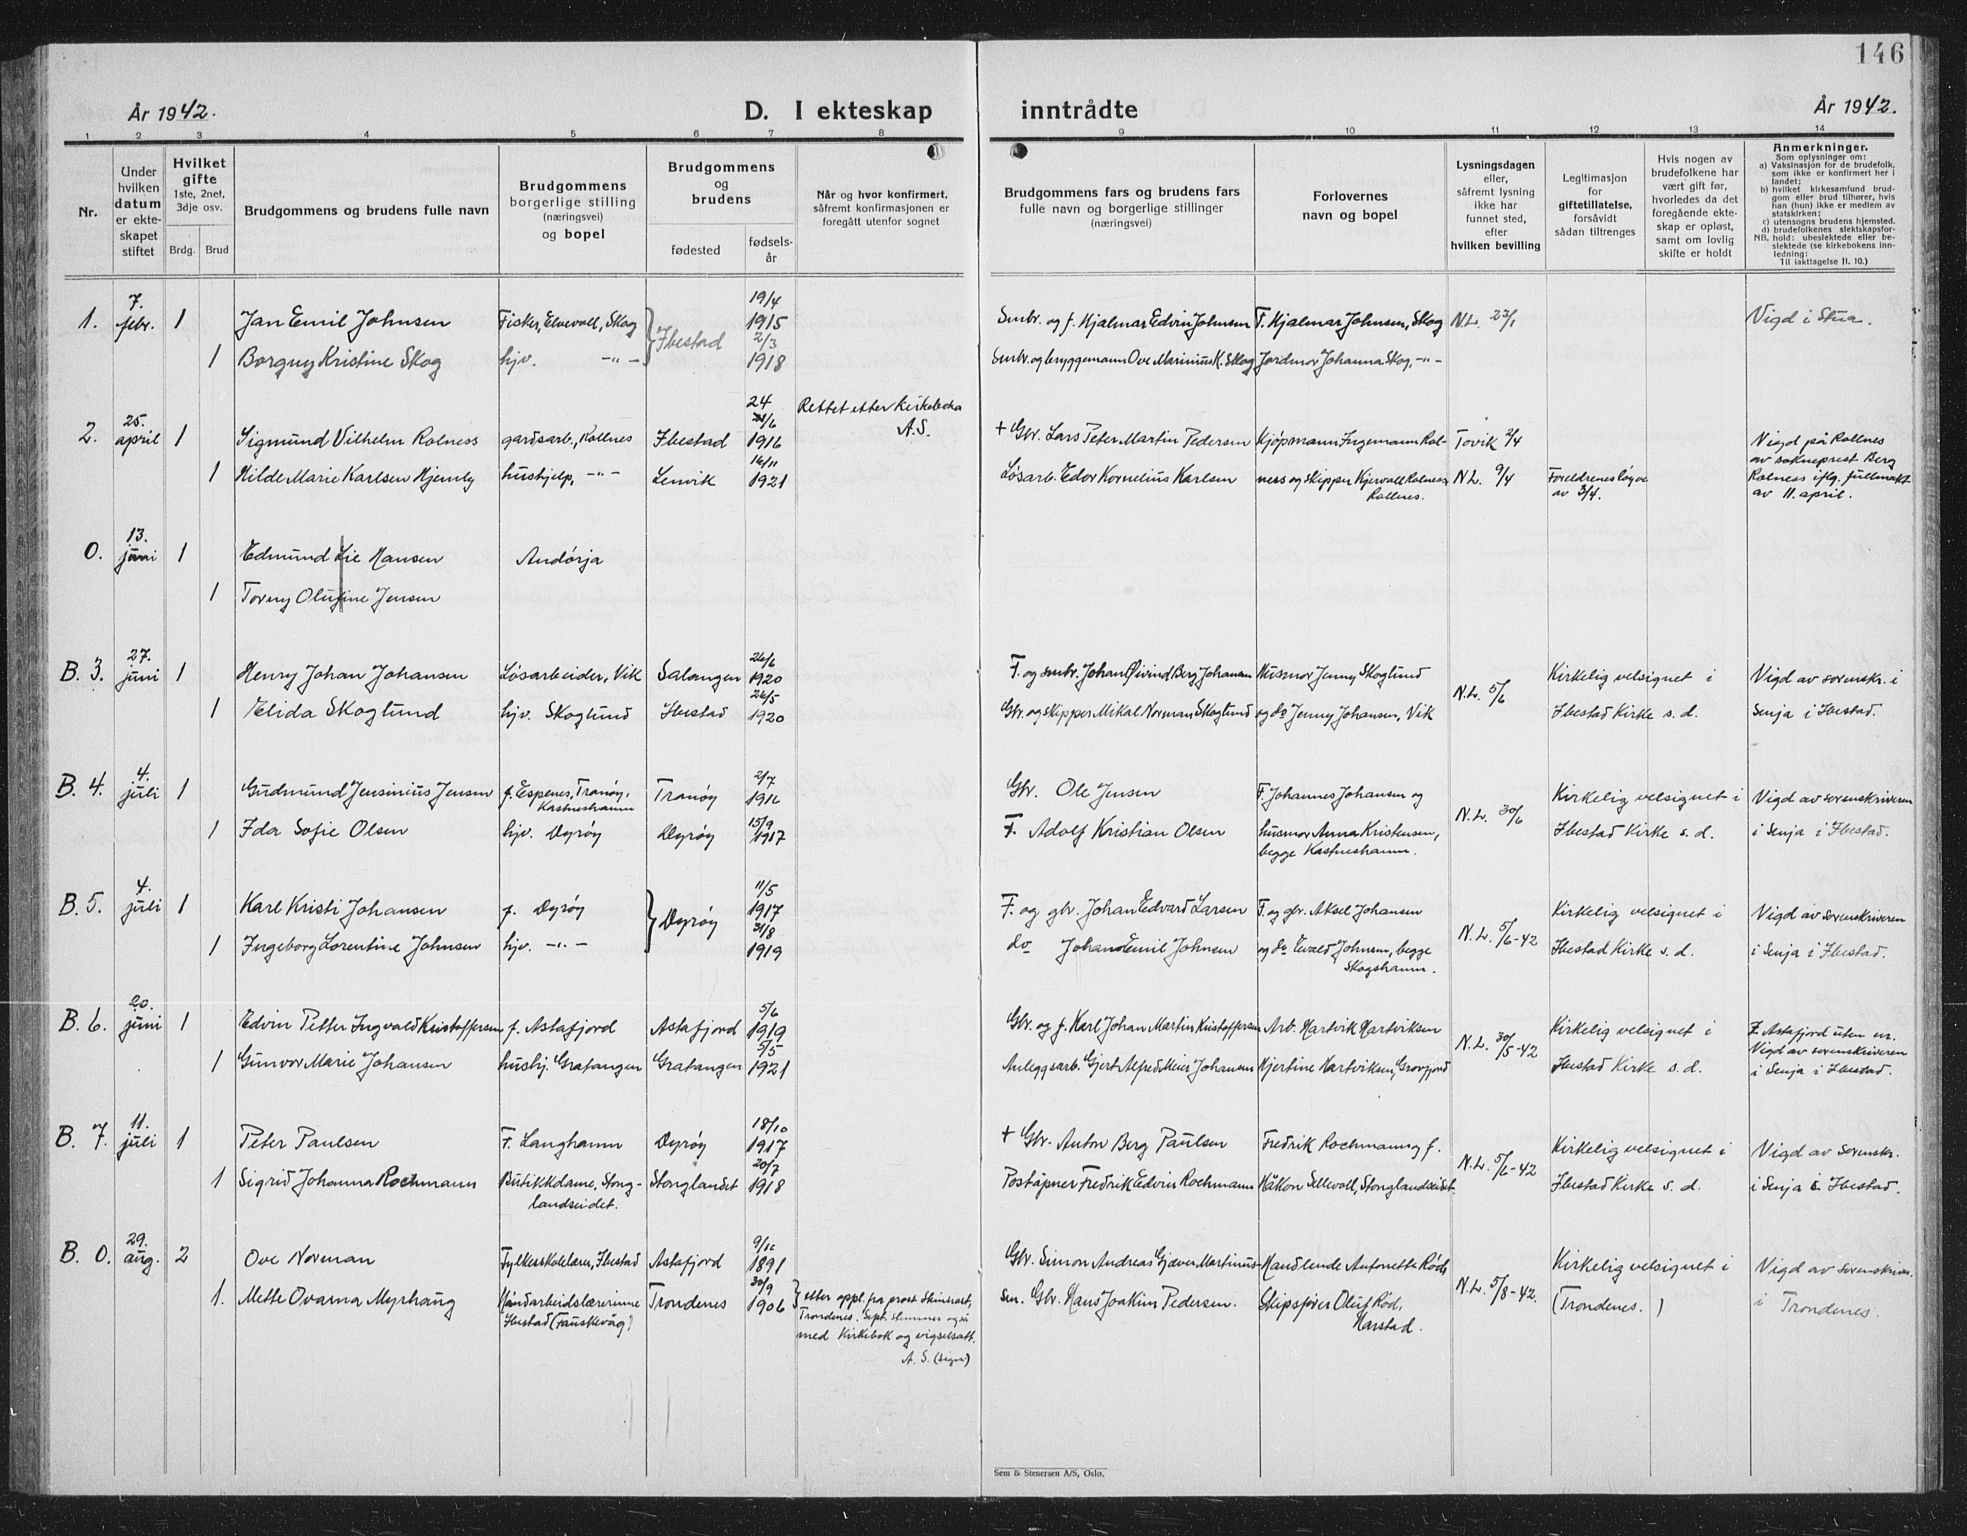 146
År 1942.
D. I ekteskap inntrådte
År 1942.
1 2 3 4 5 6 7 8 9 10 11 12 13 14
Nr.
Under hvilken datum er ekteskapet stiftet
Hvilket gifte
1ste, 2net, 3dje osv.
Brdg. Brud
Brudgommens og brudens fulle navn
Brudgommens borgerlige stilling (næringsvei) og bopel
Brudgommens og brudens
fødested
fødselsår
Når og hvor konfirmert,
såfremt konfirmasjonen er
foregått utenfor sognet
Brudgommens fars og brudens fars
fulle navn og borgerlige stillinger
(næringsvei)
Forlovernes
navn og bopel
Lysningsdagen
eller,
såfremt lysning
ikke har
funnet sted,
efter
hvilken bevilling
Legitimasjon
for
giftetillatelse,
forsåvidt
sådan tiltrenges
Hvis nogen av
brudefolkene har
vært gift før,
hvorledes da det
foregående ekte-
skap er opløst,
samt om lovlig
skifte er holdt
Anmerkninger.
Som oplysninger om:
a) Vaksinasjon for de brudefolk,
som ikke er konfirmert her i
landet;
b) hvilket kirkesamfund brud-
gom eller brud tilhører, hvis
han (hun) ikke er medlem av
statskirken;
c) utensogns brudens hjemsted.
d) brudefolkenes slektskapsfor-
NB. hold: ubeslektede eller be-
slektede (se kirkebokens inn-
ledning:
Til iakttagelse II. 10.)
1. 7. febr. 1 Jan Emil Johnsen Fisker, Elvevoll, Skog } Ibestad 19/4 1915 Smbr. og f. Hjalmar Edvin Johnsen F. Hjalmar Johnsen, Skog N.L. 23/1 Vigd i Stua.
1 Borgny Kristine Skog hjv. -"- 2/3 1918 Smbr. og bryggemann Ove Marinius K. Skog Jordmor Johanna Skog, -"-
Rettet etter Kirkeboka
A.S.
2. 25. april 1 Sigmund Vilhelm Rolness gardsarb., Rollnes Ibestad 24/6 1916 + Gbr. Lars Peter Martin Pedersen Kjøpmann Ingemann Rol- Tovik 2/4 Vigd på Rollnes
1 Hilde Marie Karlsen Hjemly hushjelp, -"- Lenvik 16/11 1921 Løsarb. Edor Kornelius Karlsen ness og skipper Kjervall Rolness, Rollnes. N L. 9/4 Foreldrenes løyve av 3/4. av sokneprest Berg
Rolness iflg. fullmakt
av 11. april.
0. 13. juni 1 Edmund Lie Hansen Andørja
1 Torny Olufine Jensen
B. 3. 27. juni 1 Henry Johan Johansen Løsarbeider, Vik Salangen 26/6 1920 F. og smbr. Johan Øivind Berg Johansen Husmor Jenny Skoglund N.L. 5/6 Kirkelig velsignet i Vigd av sorenskr. i
1 Elida Skoglund hjv. Skoglund Ibestad 26/5 1920 Gbr. og skipper Mikal Norman Skoglund og do Jenny Johansen, Vik Ibestad Kirke s. d. Senja i Ibestad.
B. 4. 4. juli 1 Gudmund Jensinius Jensen f. Espenes, Tranøy, Kastneshamn Tranøy 2/7 1916 Gbr. Ole Jensen F. Johannes Johansen og N.L. 30/6 Kirkelig velsignet i Vigd av sorenskriveren
1 Ida Sofie Olsen hjv. Dyrøy Dyrøy 15/9 1917 F. Adolf Kristian Olsen husmor Anna Kristensen, Ibestad Kirke s. d. i Senja i Ibestad.
begge Kastneshamn.
B. 5. 4. juli 1 Karl Kristi Johansen f. Dyrøy } Dyrøy 11/5 1917 F. og gbr. Johan Edvard Larsen F. og gbr. Aksel Johansen N.L. 5/6-42 Kirkelig velsignet i Vigd av sorenskriveren
1 Ingeborg Lorentine Johnsen hjv. -"- 31/8 1919 do Johan Emil Johnsen og do Ewald Johnsen, begge Ibestad Kirke s. d. i Senja i Ibestad.
Skogshamn.
B. 6. 20. juni 1 Edvin Petter Ingvald Kristoffersen f. Astafjord Astafjord 5/6 1919 Gbr. og f. Karl Johan Martin Kristoffersen Arb. Hartvik Hartviksen N.L. 30/5-42 Kirkelig velsignet i F. Astafjord uten nr.
1 Gunvor Marie Johansen hushj. Gratangen Gratangen 5/5 1921 Anleggsarb. Gjert Alfred Meier Johansen Hjertine Hartviksen, Grovfjord Ibestad Kirke s. d. Vigd av sorenskriveren
i Senja i Ibestad.
B. 7. 11. juli 1 Peter Paulsen F. Langhamn Dyrøy 18/10 1917 + Gbr. Anton Berg Paulsen Fredrik Rochmann og f. N.L. 5/6-42 Kirkelig velsignet i Vigd av sorenskr.
1 Sigrid Johanna Rochmann Butikkdame, Stonglandseidet. Stonglandet 20/7 1918 Poståpner Fredrik Edvin Rochmann Håkon Sellevoll, Stonglandseidet Ibestad Kirke s. d. i Senja i Ibestad.
B. 0. 29. aug. 2 Ove Norman Fylkesskolelærer, Ibestad Astafjord 1891 Gbr. Simon Andreas Gjæver Martinus- Handlende Antonette Rød, N.L. 5/8-42. Kirkelig velsignet i Vigd av sorenskriver
1. Mette Ovarna Myrhaug Håndarbeidslærerinne Ibestad (Fauskevåg) Trondenes 30/9 1906 } etter oppl. fra prost Skinstad, sen. Gbr. Hans Joakim Pedersen. Skipsfører Oluf Rød, (Trondenes.) i Trondenes.
Trondenes. Sept. stemmer også Harstad.
med Kirkebok og vigselsatt.
A. S. (sign)
Sem & Stenersen A/S, Oslo.